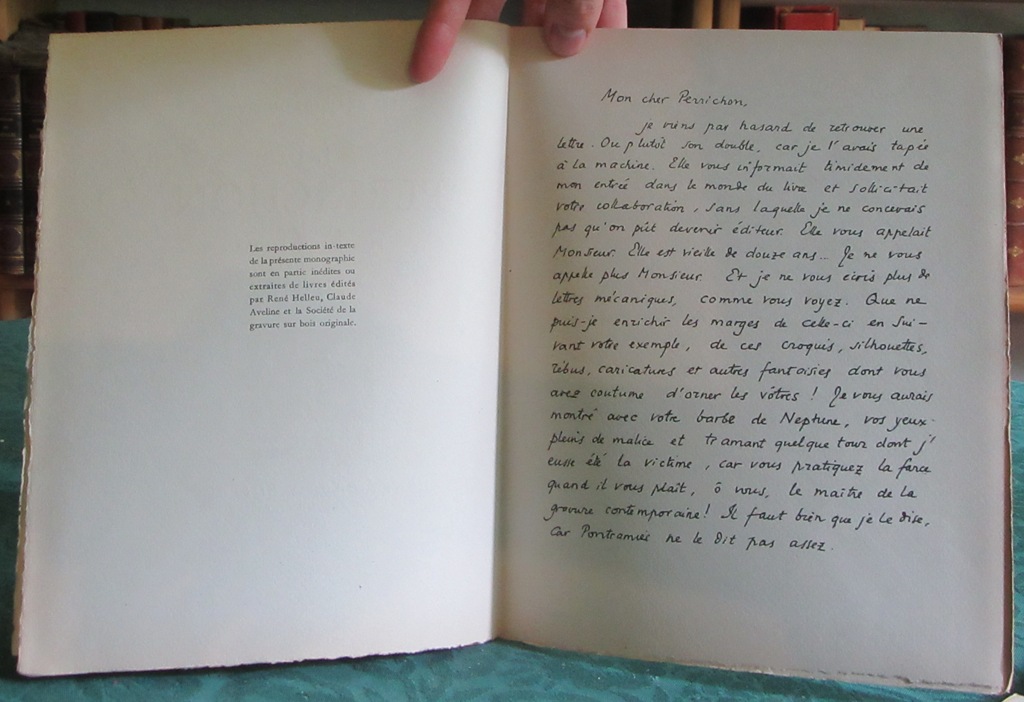 Les reproductions in-texte
de la présente monographie
sont en partie inédites ou
extraites de livres édités
par René Helleu, Claude
Aveline et la Société de la
gravure sur bois originale.
Mon cher Perrichon,
je viens par hasard de retrouver une
lettre. Ou plutôt son double, car je l'avais tapée
à la machine. Elle vous informait timidement de
mon entrée dans le monde du livre et sollicitait
votre collaboration, sans laquelle je ne concevais
pas qu'on pût devenir éditeur. Elle vous appelait
Monsieur. Elle est vieille de douze ans... Je ne vous
appelle plus Monsieur. Et je ne vous écris plus de
lettres mécaniques, comme vous voyez. Que ne
puis-je enrichir les marges de celle-ci en sui-
vant votre exemple, de ces croquis, silhouettes,
rébus, caricatures et autres fantaisies dont vous
avez coutume d'orner les vôtres ! Je vous aurais
montré avec votre barbe de Neptune, vos yeux
pleins de malice et tramant quelque tour dont j'
eusse été la victime, car vous pratiquez la farce
quand il vous plaît, ô vous, le maître de la
gravure contemporaine ! Il faut bien que je le dise,
car Pontramier ne le dit pas assez.